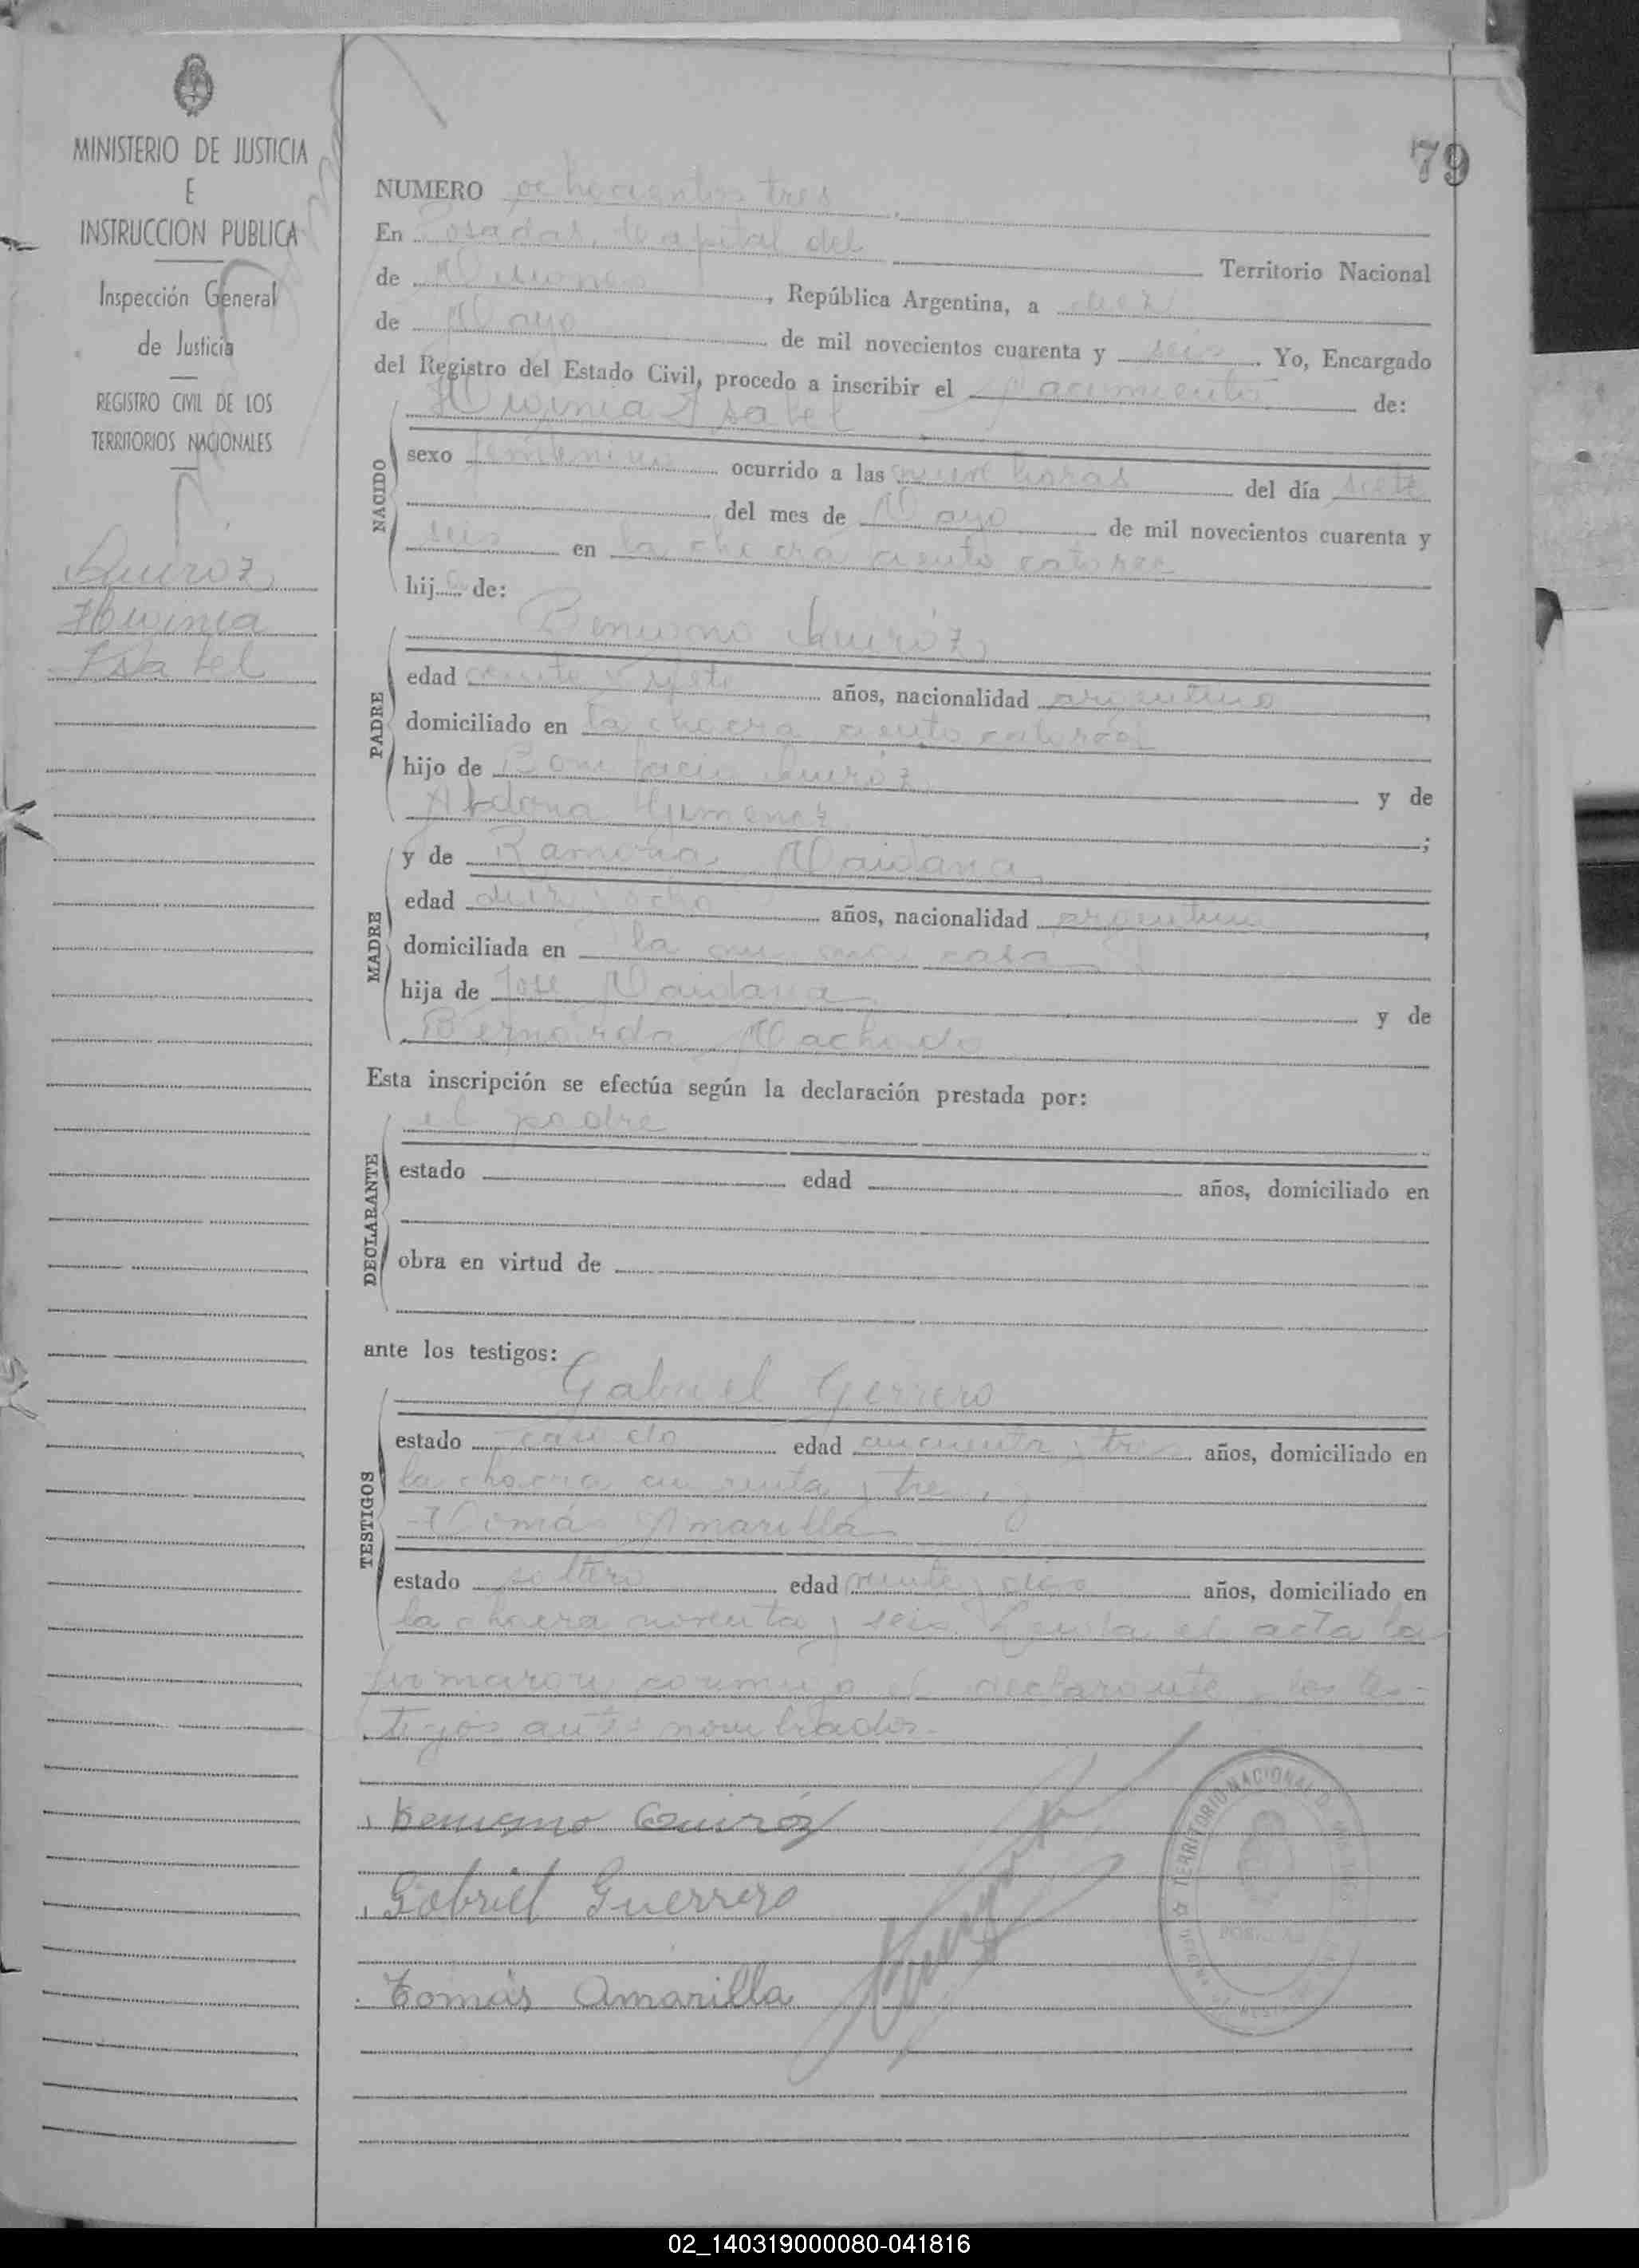 MINISTERIO DE JUSTICIA
E
INSTRUCCION PUBLICA
Inspección General
de Justicia
REGISTRO CIVIL DE LOS
TERRITORIOS NACIONALES
Quiróz
Isabel
79
NUMERO ochocientos tres
En Posadas, capital del Territorio Nacional
de Misiones, República Argentina, a diez
de Mayo de mil novecientos cuarenta y seis. Yo, Encargado
del Registro del Estado Civil, procedo a inscribir el Nacimiento de:
Isabel
NACIDO
sexo femenino ocurrido a las horas del día siete
del mes de Mayo de mil novecientos cuarenta y
seis en la chacra ciento catorce
hija de:
Benigno Quiróz
PADRE
edad veinte y siete años, nacionalidad argentino
domiciliado en la chacra ciento catorce
hijo de Bonifacio Quiróz y de
Gimenez;
y de Ramona Maidana
MADRE
edad diez y ocho años, nacionalidad argentina
domiciliada en la misma casa
hija de José Maidana y de
Bernarda Machado
Esta inscripción se efectúa según la declaración prestada por:
el padre
DECLARANTE
estado edad años, domiciliado en
obra en virtud de
ante los testigos:
Gabriel Gerrero
TESTIGOS
estado casado edad cincuenta y tres años, domiciliado en
la chacra y tres
Tomás Amarilla
estado soltero edad veinte y años, domiciliado en
la chacra noventa y seis. Leída el acta la
firmaron conmigo el declarante y los tes-
tigos antes nombrados.-
Benigno Quiróz
Gabriel Guerrero
Tomás Amarilla
TERRITORIO NACIONAL
POSADAS
02_140319000080-041816